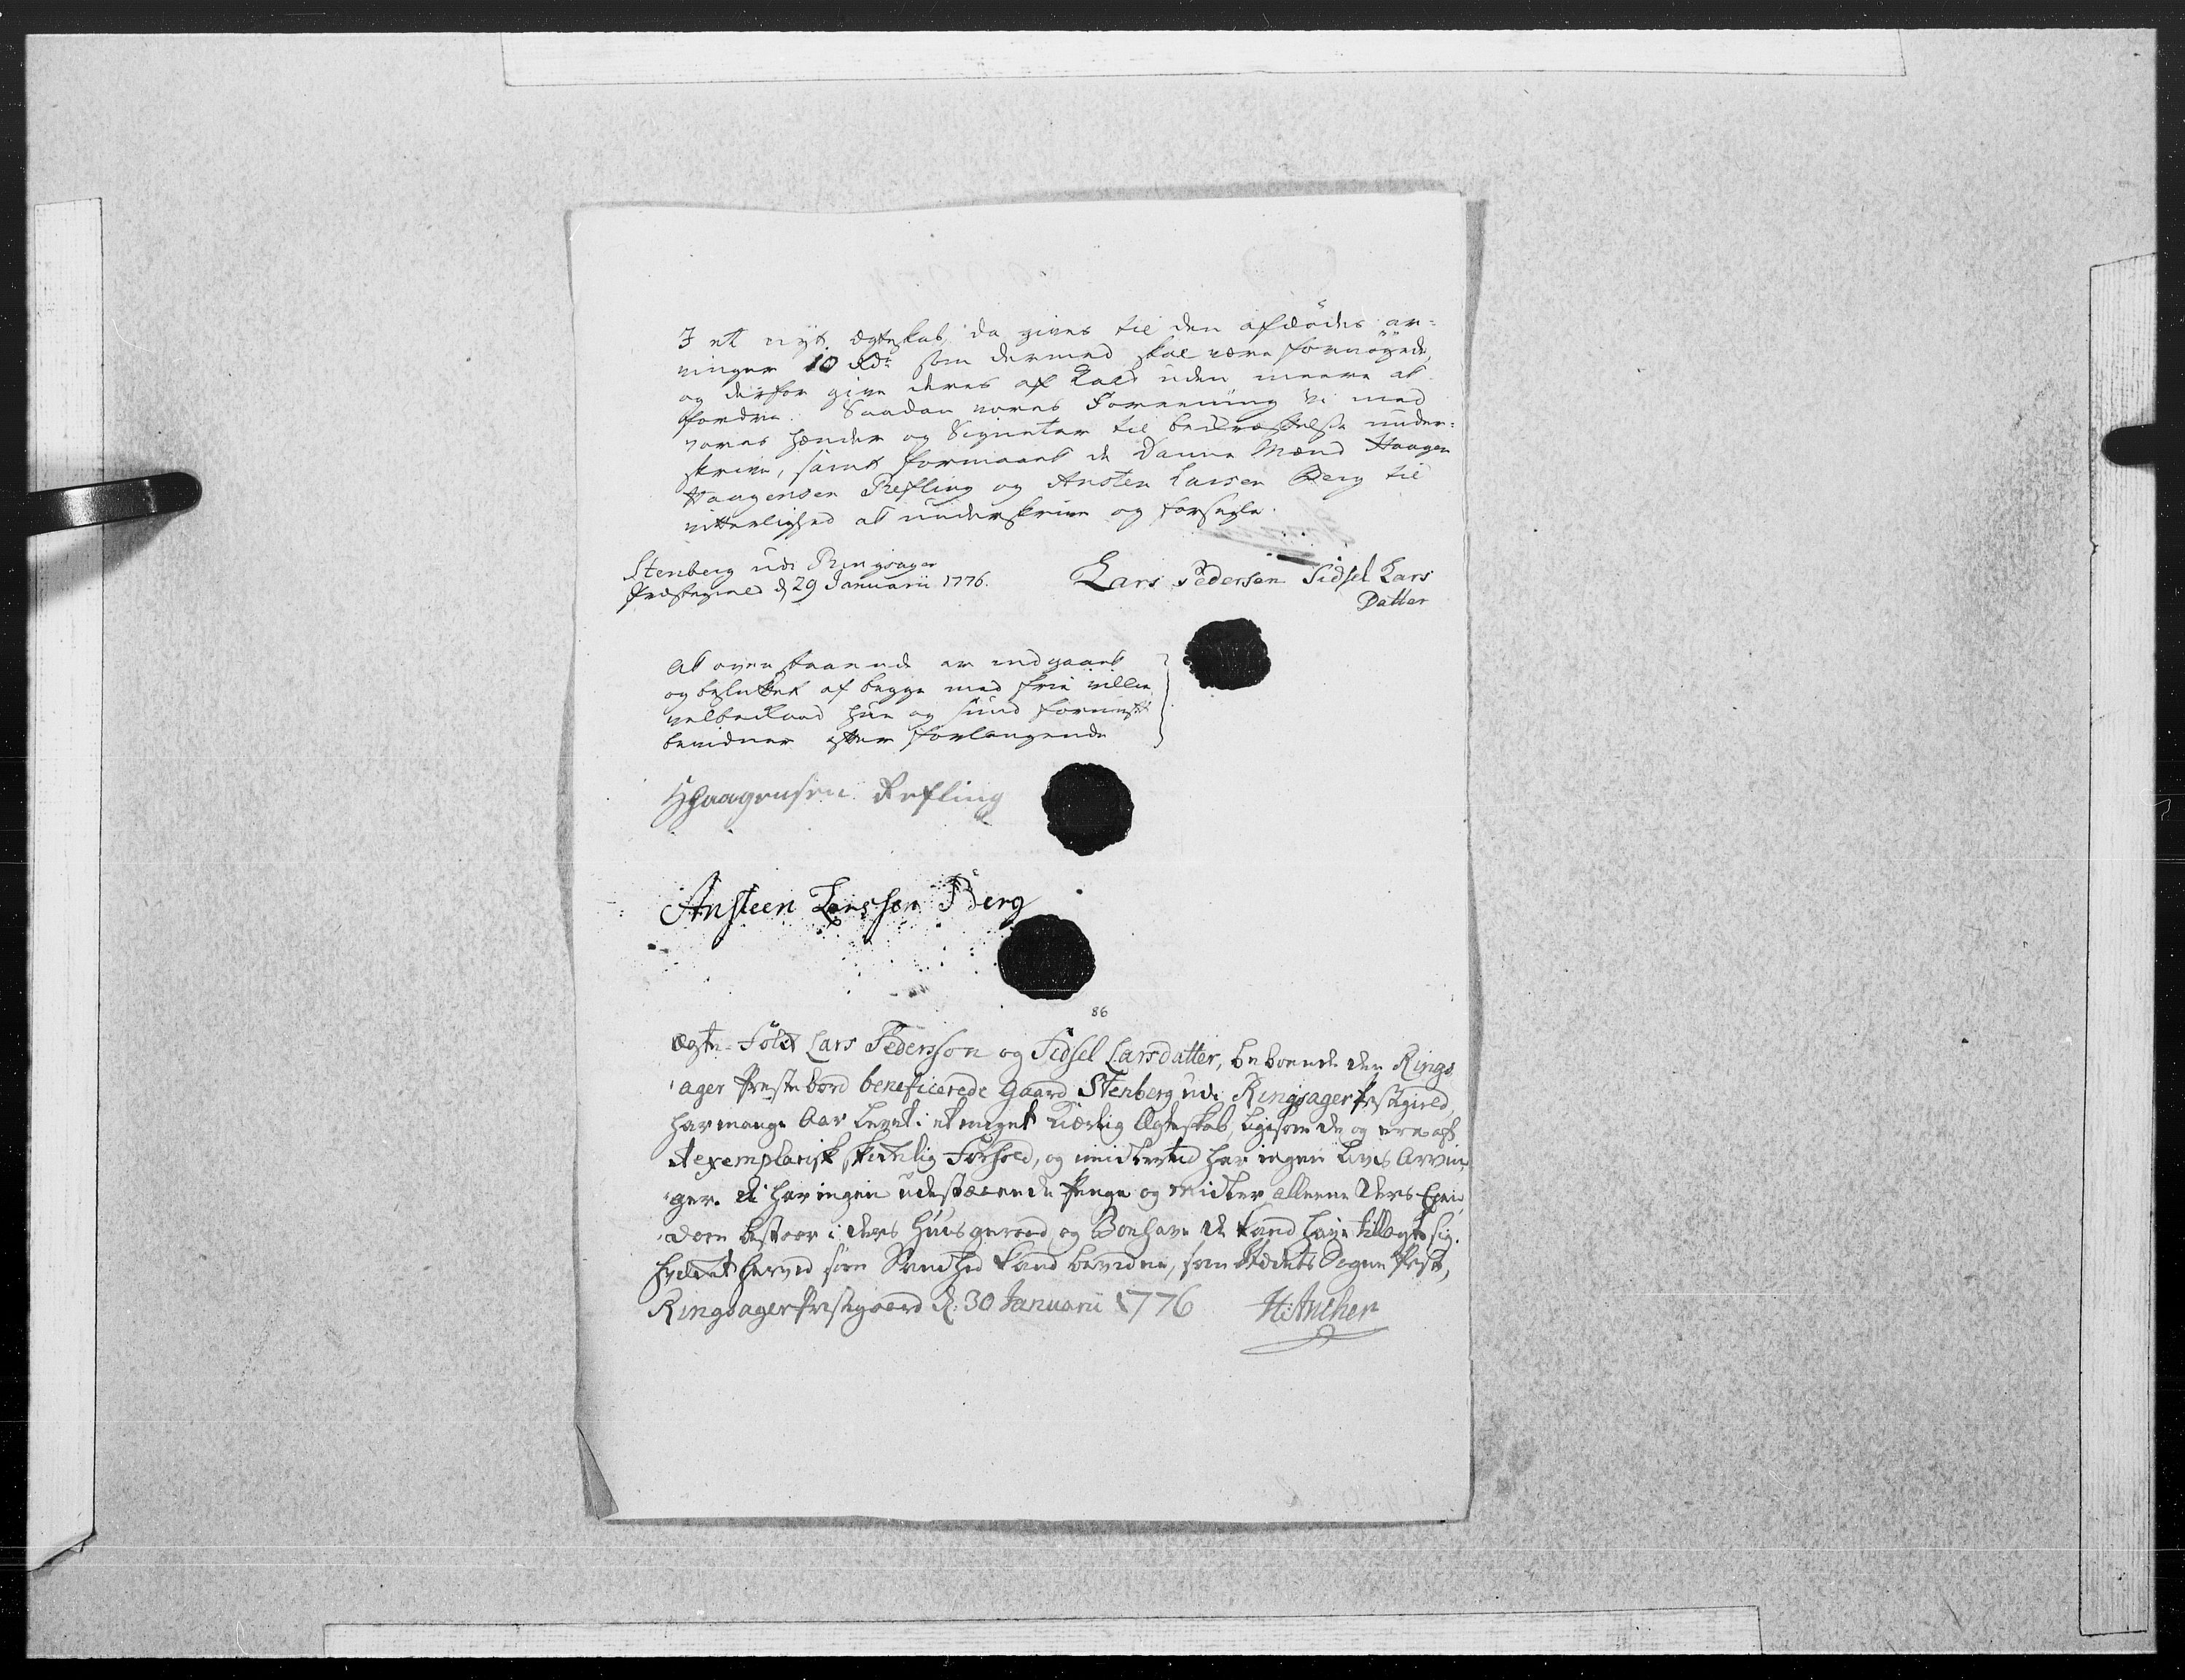 I et nyt ægteskab, da gives til den afdødes ar-
vinger 10 Rdr som dermed skal være fornøyede,
og derfor give deres af Kald uden meere at
fordre. Saadan vores Foreening vi med
vores hænder og Signeter til bekræftelse under-
skrive, samt formaaet de Danne Mænd Haagen
Haagensen Refling og Ansten Larsen Berg til
vitterlighed at underskrive og forsegle.
Stenberg udi Ringsager
Præstegield d 29 Januarii 1776.
Lars Pedersen Sidsel Lars
Datter
At ovenstaaende er indgaaet
og besluttet af begge med frie villie,
velberaad hue og sund fornuft
bevidner efter forlangende
HHaagensen Refling
Ansteen Larsson Berg
86
Ægte-Folk Lars Pedersson og Sidsel Larsdatter, beboende den Rings
ager Prestebord beneficerede Gaard Stenberg udi Ringsager Prestegield,
har mange Aar levet i et meget Kierlig Ægteskab, ligesom de og ere af
et exemplarisk skikkelig Forhold, og imidlertid har ingen Livs Arvin-
ger. Ei har ingen udestaaende Penge og Midler alleene deres Eien-
dom bestaar i deres Huusgeraad og Boehave de kand have tillagt sig.
hvilket herved som Sandhed kand bevidne, som Stedets Sogne Prest,
Ringsager Prestegaard d. 30 Januarii 1776 H: Ancher